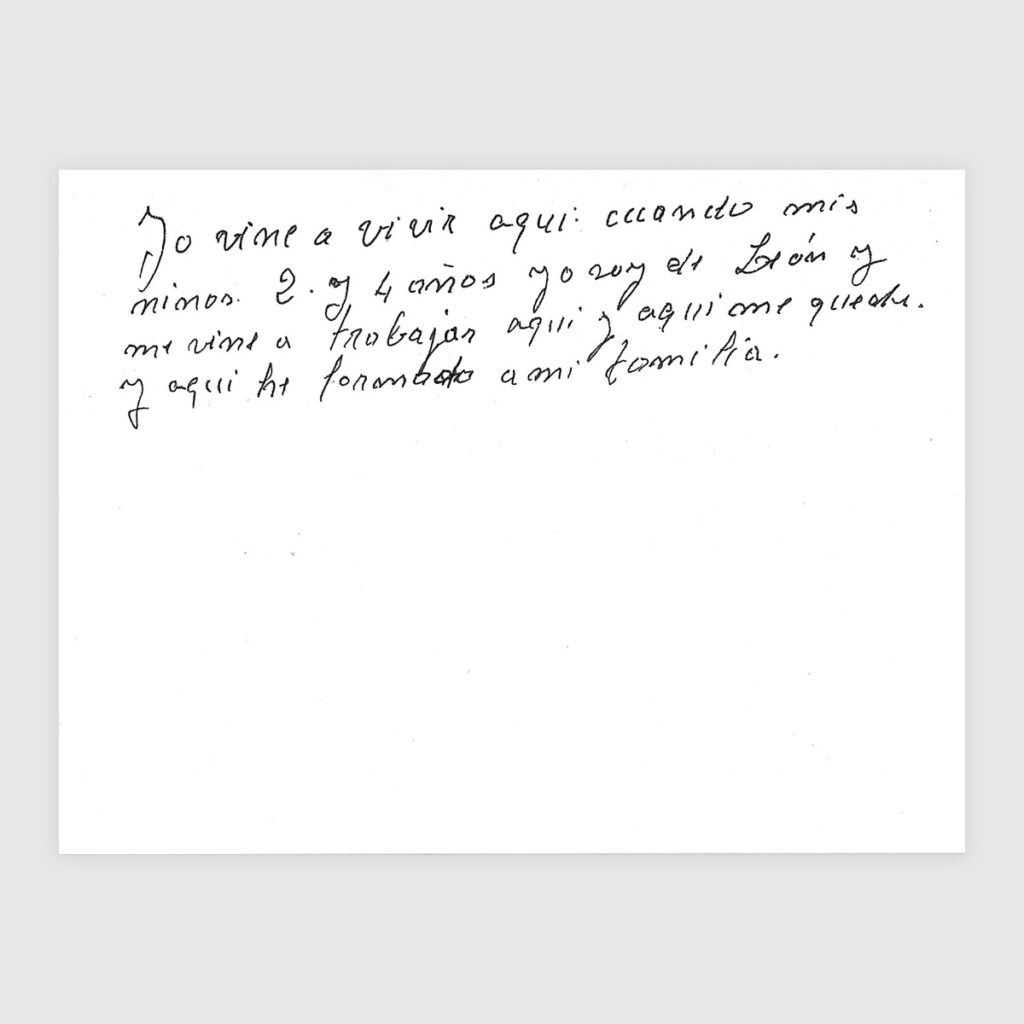 Yo vine a vivir aqui: cuando mis
ninos. 2. y 4 años yo soy de León y
me vine a trabajar aqui y aqui me quede.
y aqui he formado a mi familia.